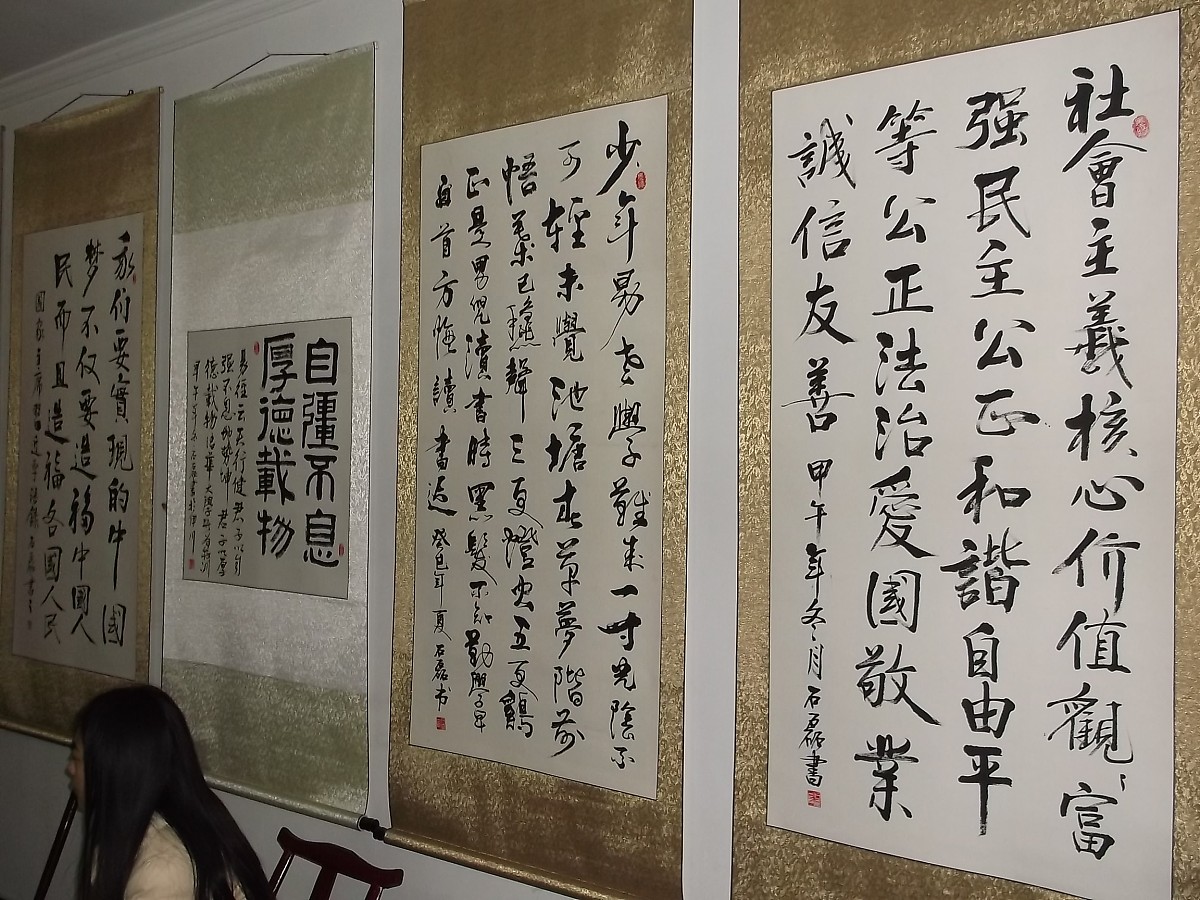 社會主義核心价值觀富
强民主公正和諧自由平
等公正法治愛國敬業
誠信友善 甲午年冬月石磊書
少年易老學難成一寸光陰不
可輕未覺池塘春草夢階前
悟葉已穐聲三更燈火五更鷄
正是男兒讀書時黑髮不知勤學早
白首方悔讀書遲 癸巳年夏石磊书
自彊不息
厚德載物
易經云天行健君子以自
强不息地勢坤君子以厚
德載物清華大學校訓
甲午年冬石磊書於伊川
我们要實現的中國
梦不仅要造福中國人
民而且造福各國人民
國家主席習近平語錄石磊書